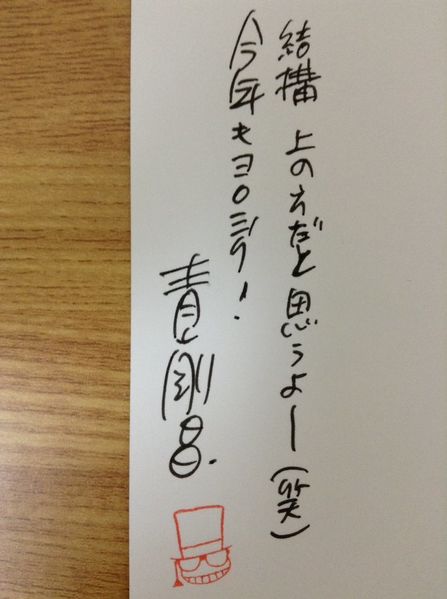 結構 上の方だと思うよー(笑)
今年もヨロシク!
青山剛昌.